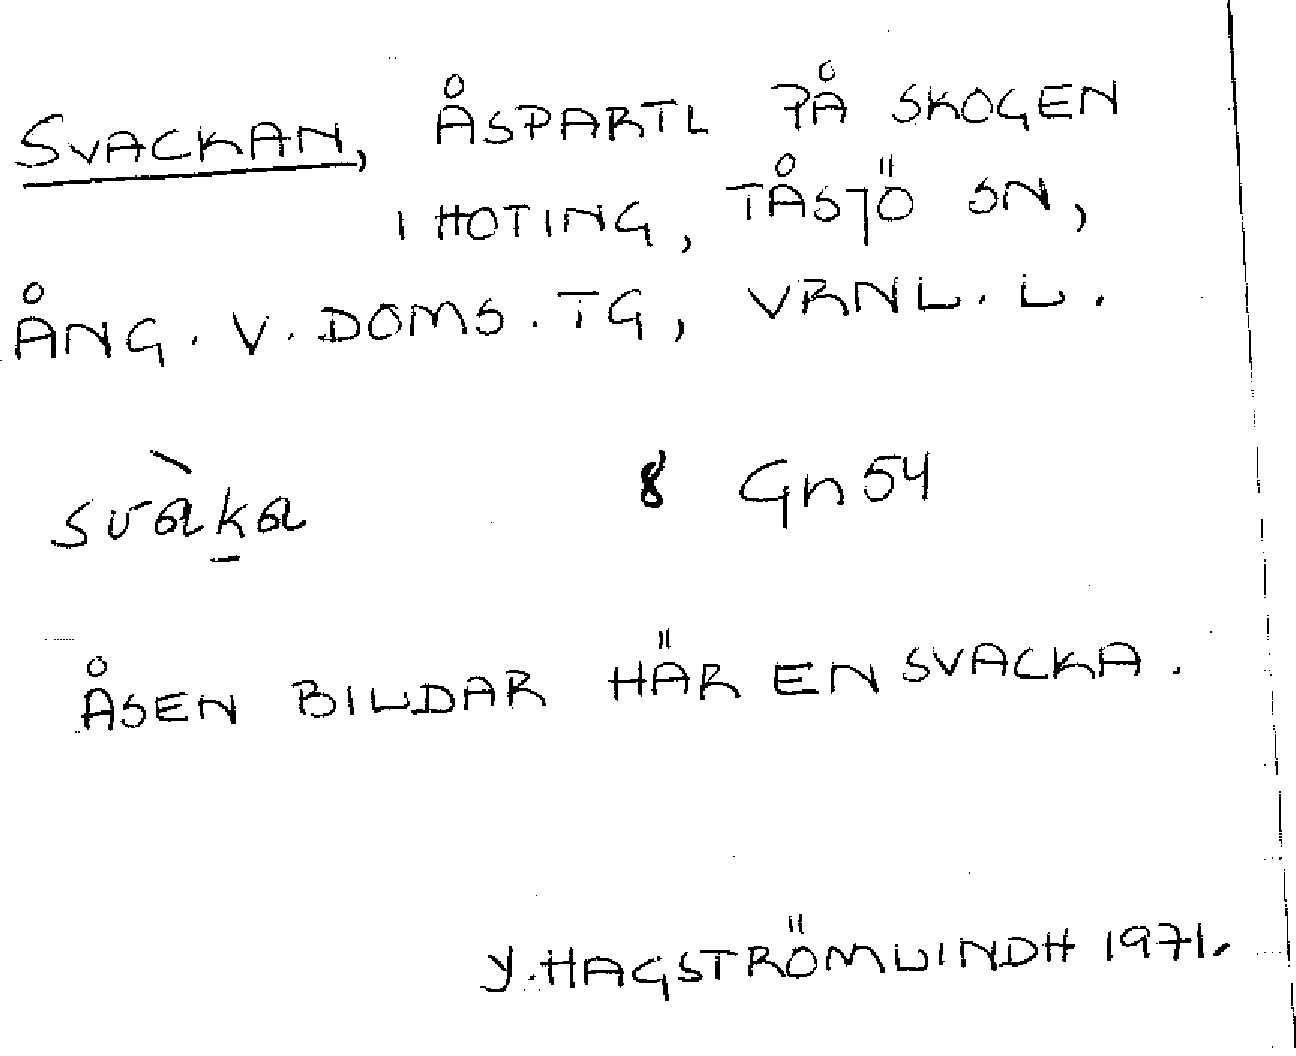 SVACKAN, ÅSPARTI PÅ SKOGEN
I HOTING, TÅSJÖ SN,
ÅNG. V. DOMS. TG, VRNL. L.
svàka 8 Gn 54
ÅSEN BILDAR HÄR EN SVACKA.
Y. HAGSTRÖM LINDH 1971.